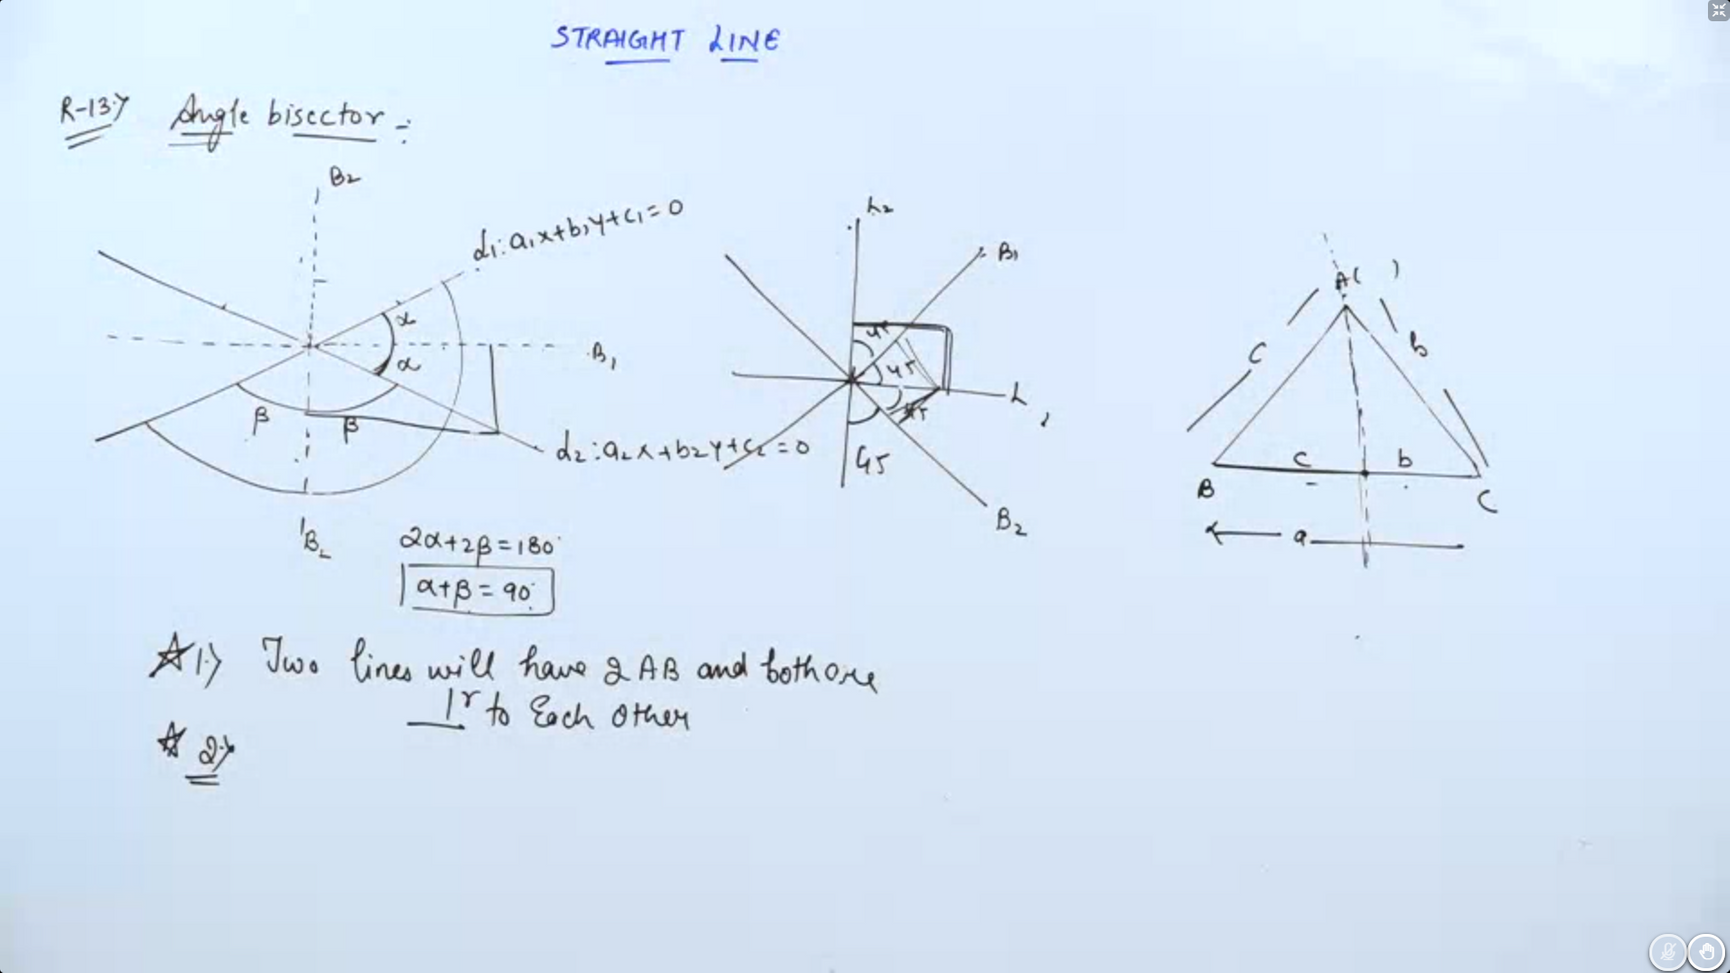 STRAIGHT LINE
R-13.) Angle bisector :-
B2
L1: a1x+b1y+c1=0
α
α
B1
β
β
L2: a2x+b2y+c2=0
B2
2α+2β=180°
α+β=90°
L2
B1
45
45
45
45
L1
B2
A( )
c
b
c
b
B
C
a
☆ 1.) Two lines will have 2 AB and both are
⊥r to Each Other
☆ 2.)